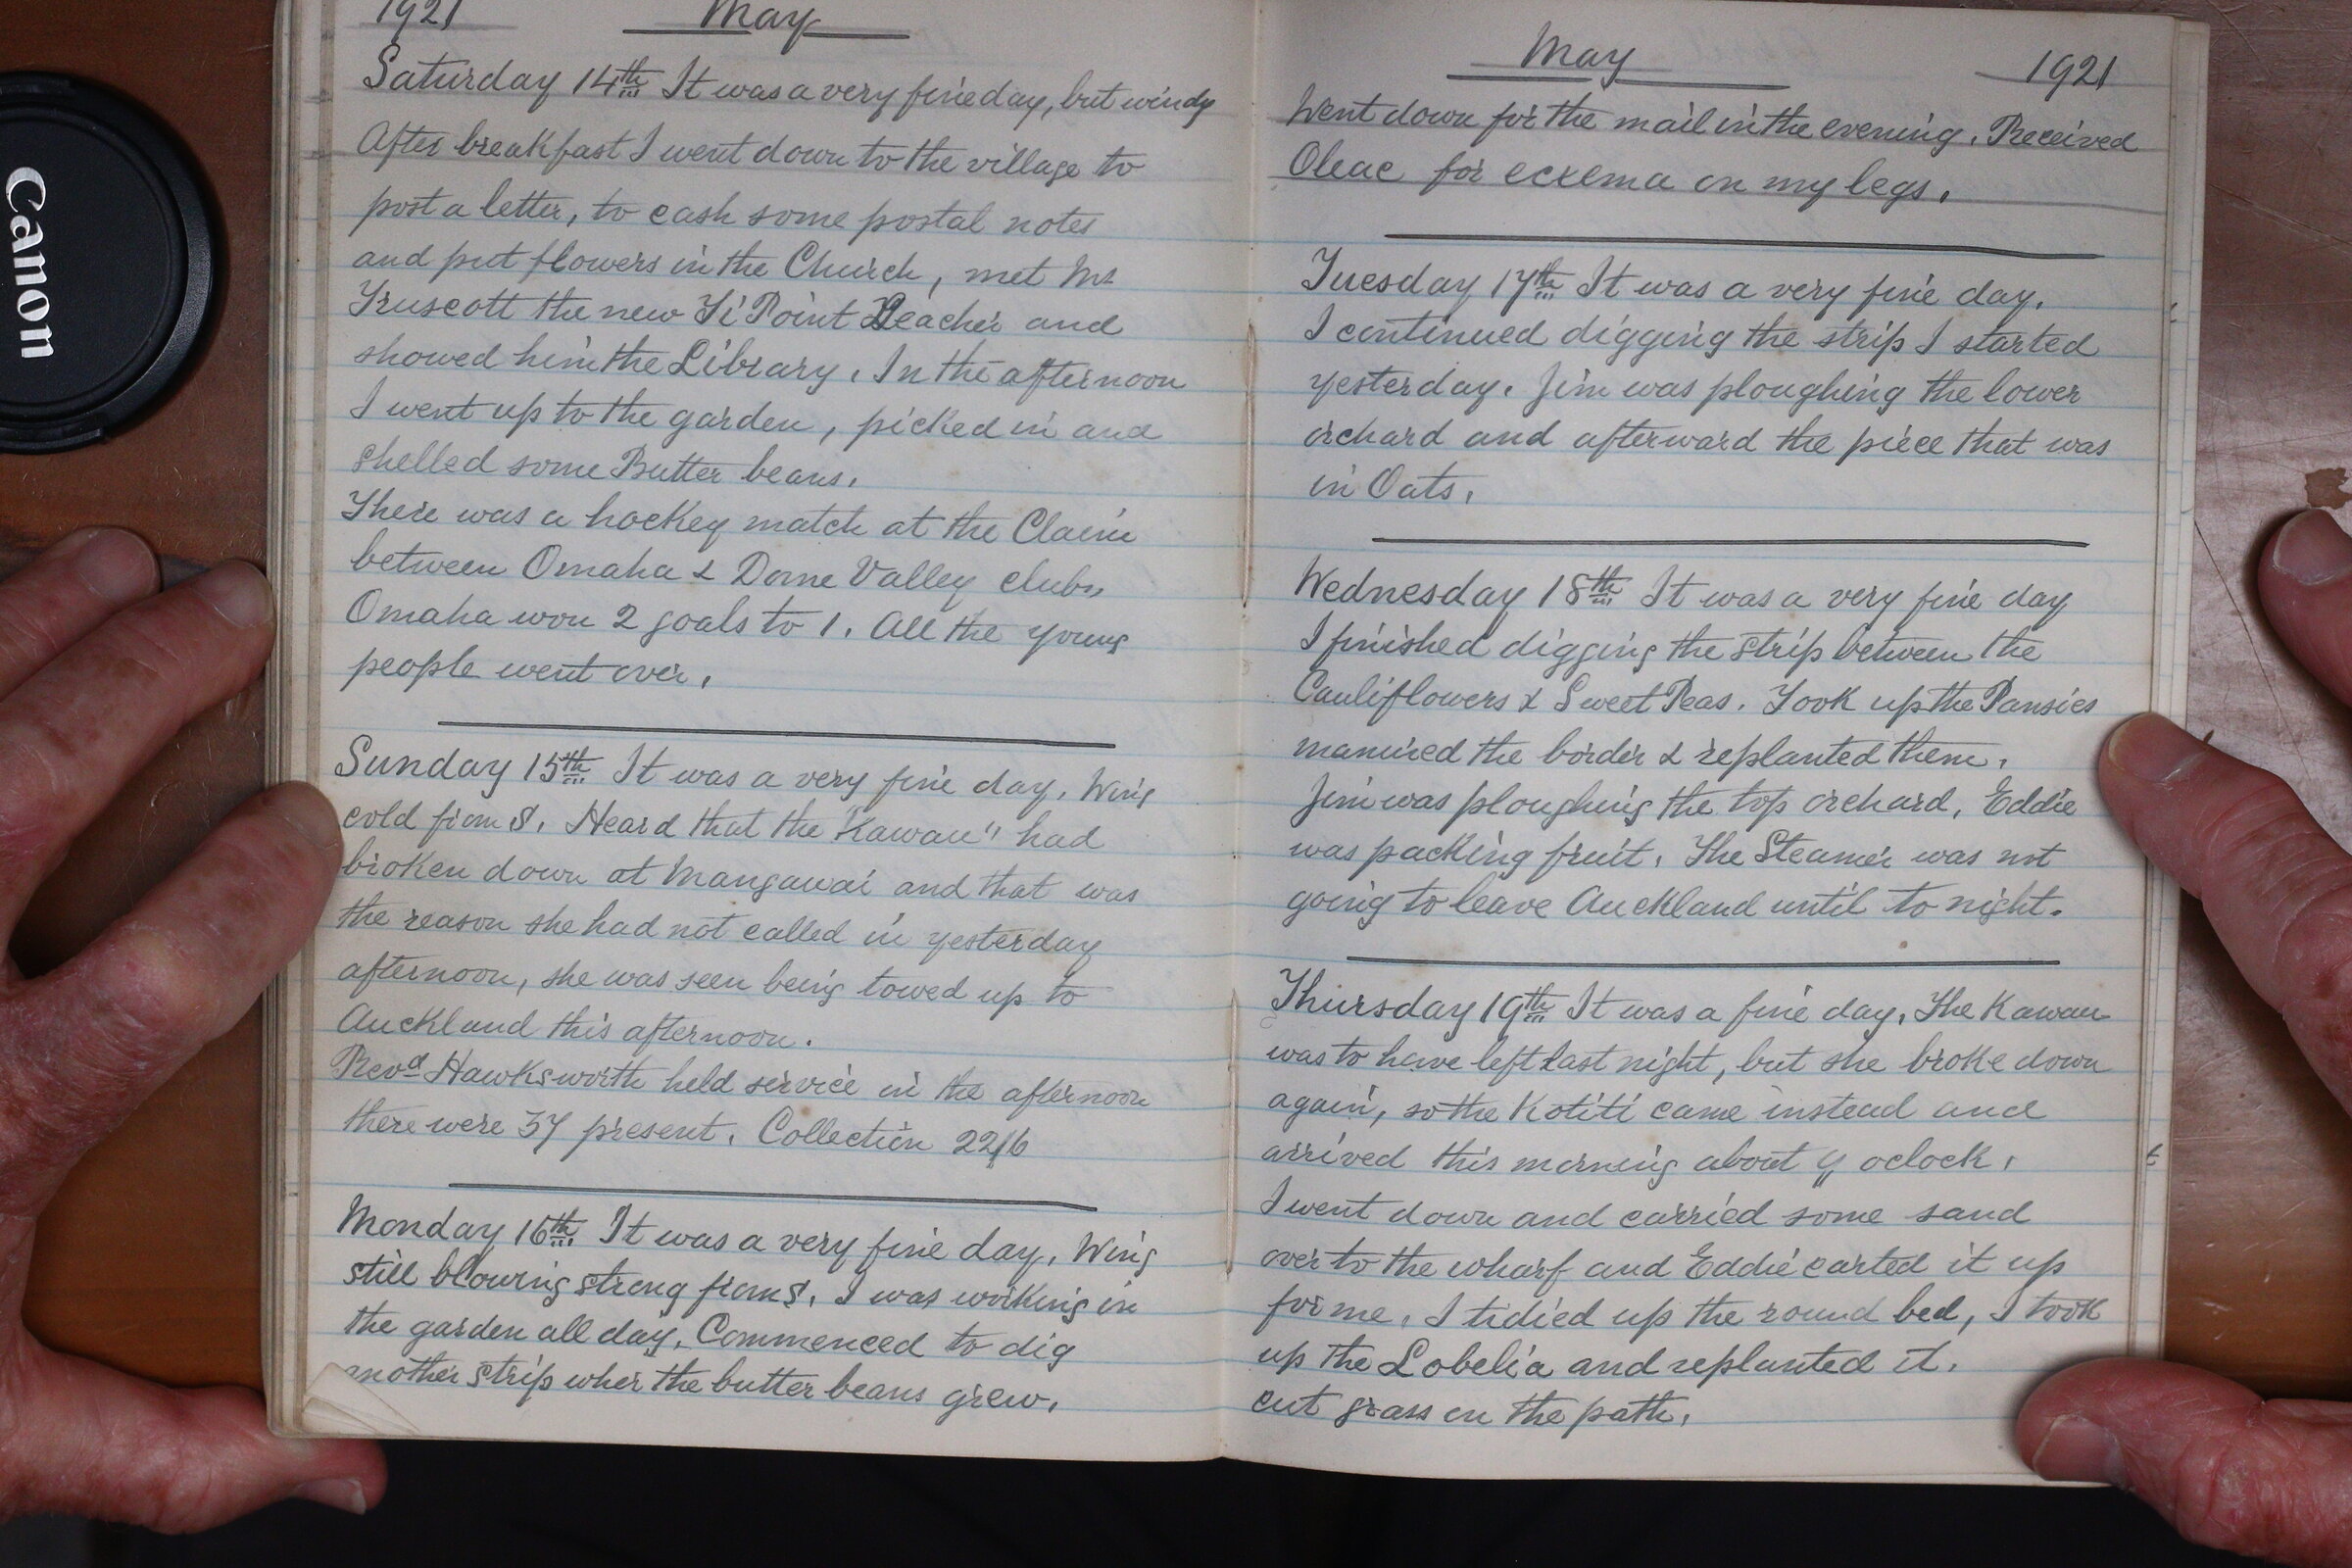 Canon
1921 May
Saturday 14th It was a very fine day, but windy
After breakfast I went down to the village to
post a letter, to cash some postal notes
and put flowers in the Church, met Mr
Truscott the new Ti Point Teacher and
showed him the Library. In the afternoon
I went up to the garden, picked in and
shelled some Butter beans.
There was a hockey match at the Claim
between Omaha & Dome Valley clubs,
Omaha won 2 goals to 1. All the young
people went over.
Sunday 15th It was a very fine day. Wing
cold from S. Heard that the "Kawau" had
broken down at Mangawai and that was
the reason she had not called in yesterday
afternoon, she was seen being towed up to
Auckland this afternoon.
Revd Hawksworth held service in the afternoon
there were 37 present. Collection 22/6
Monday 16th It was a very fine day. Wing
still blowing strong from S. I was working in
the garden all day. Commenced to dig
another strip wher the butter beans grew.
May 1921
Went down for the mail in the evening. Received
Oleac for eckema on my legs.
Tuesday 17th It was a very fine day.
I continued digging the strip I started
yesterday. Jim was ploughing the lower
orchard and afterward the piece that was
in Oats.
Wednesday 18th It was a very fine day
I finished digging the strip between the
Cauliflowers & Sweet Peas. Took up the Pansies
manured the border & replanted them.
Jim was ploughing the top orchard, Eddie
was packing fruit. The Steamer was not
going to leave Auckland until to night.
Thursday 19th It was a fine day. The Kawau
was to have left last night, but she broke down
again, so the Kotiti came instead and
arrived this morning about 9 oclock.
I went down and carried some sand
over to the wharf and Eddie carted it up
for me. I tidied up the round bed, I took
up the Lobelia and replanted it.
cut grass on the path.